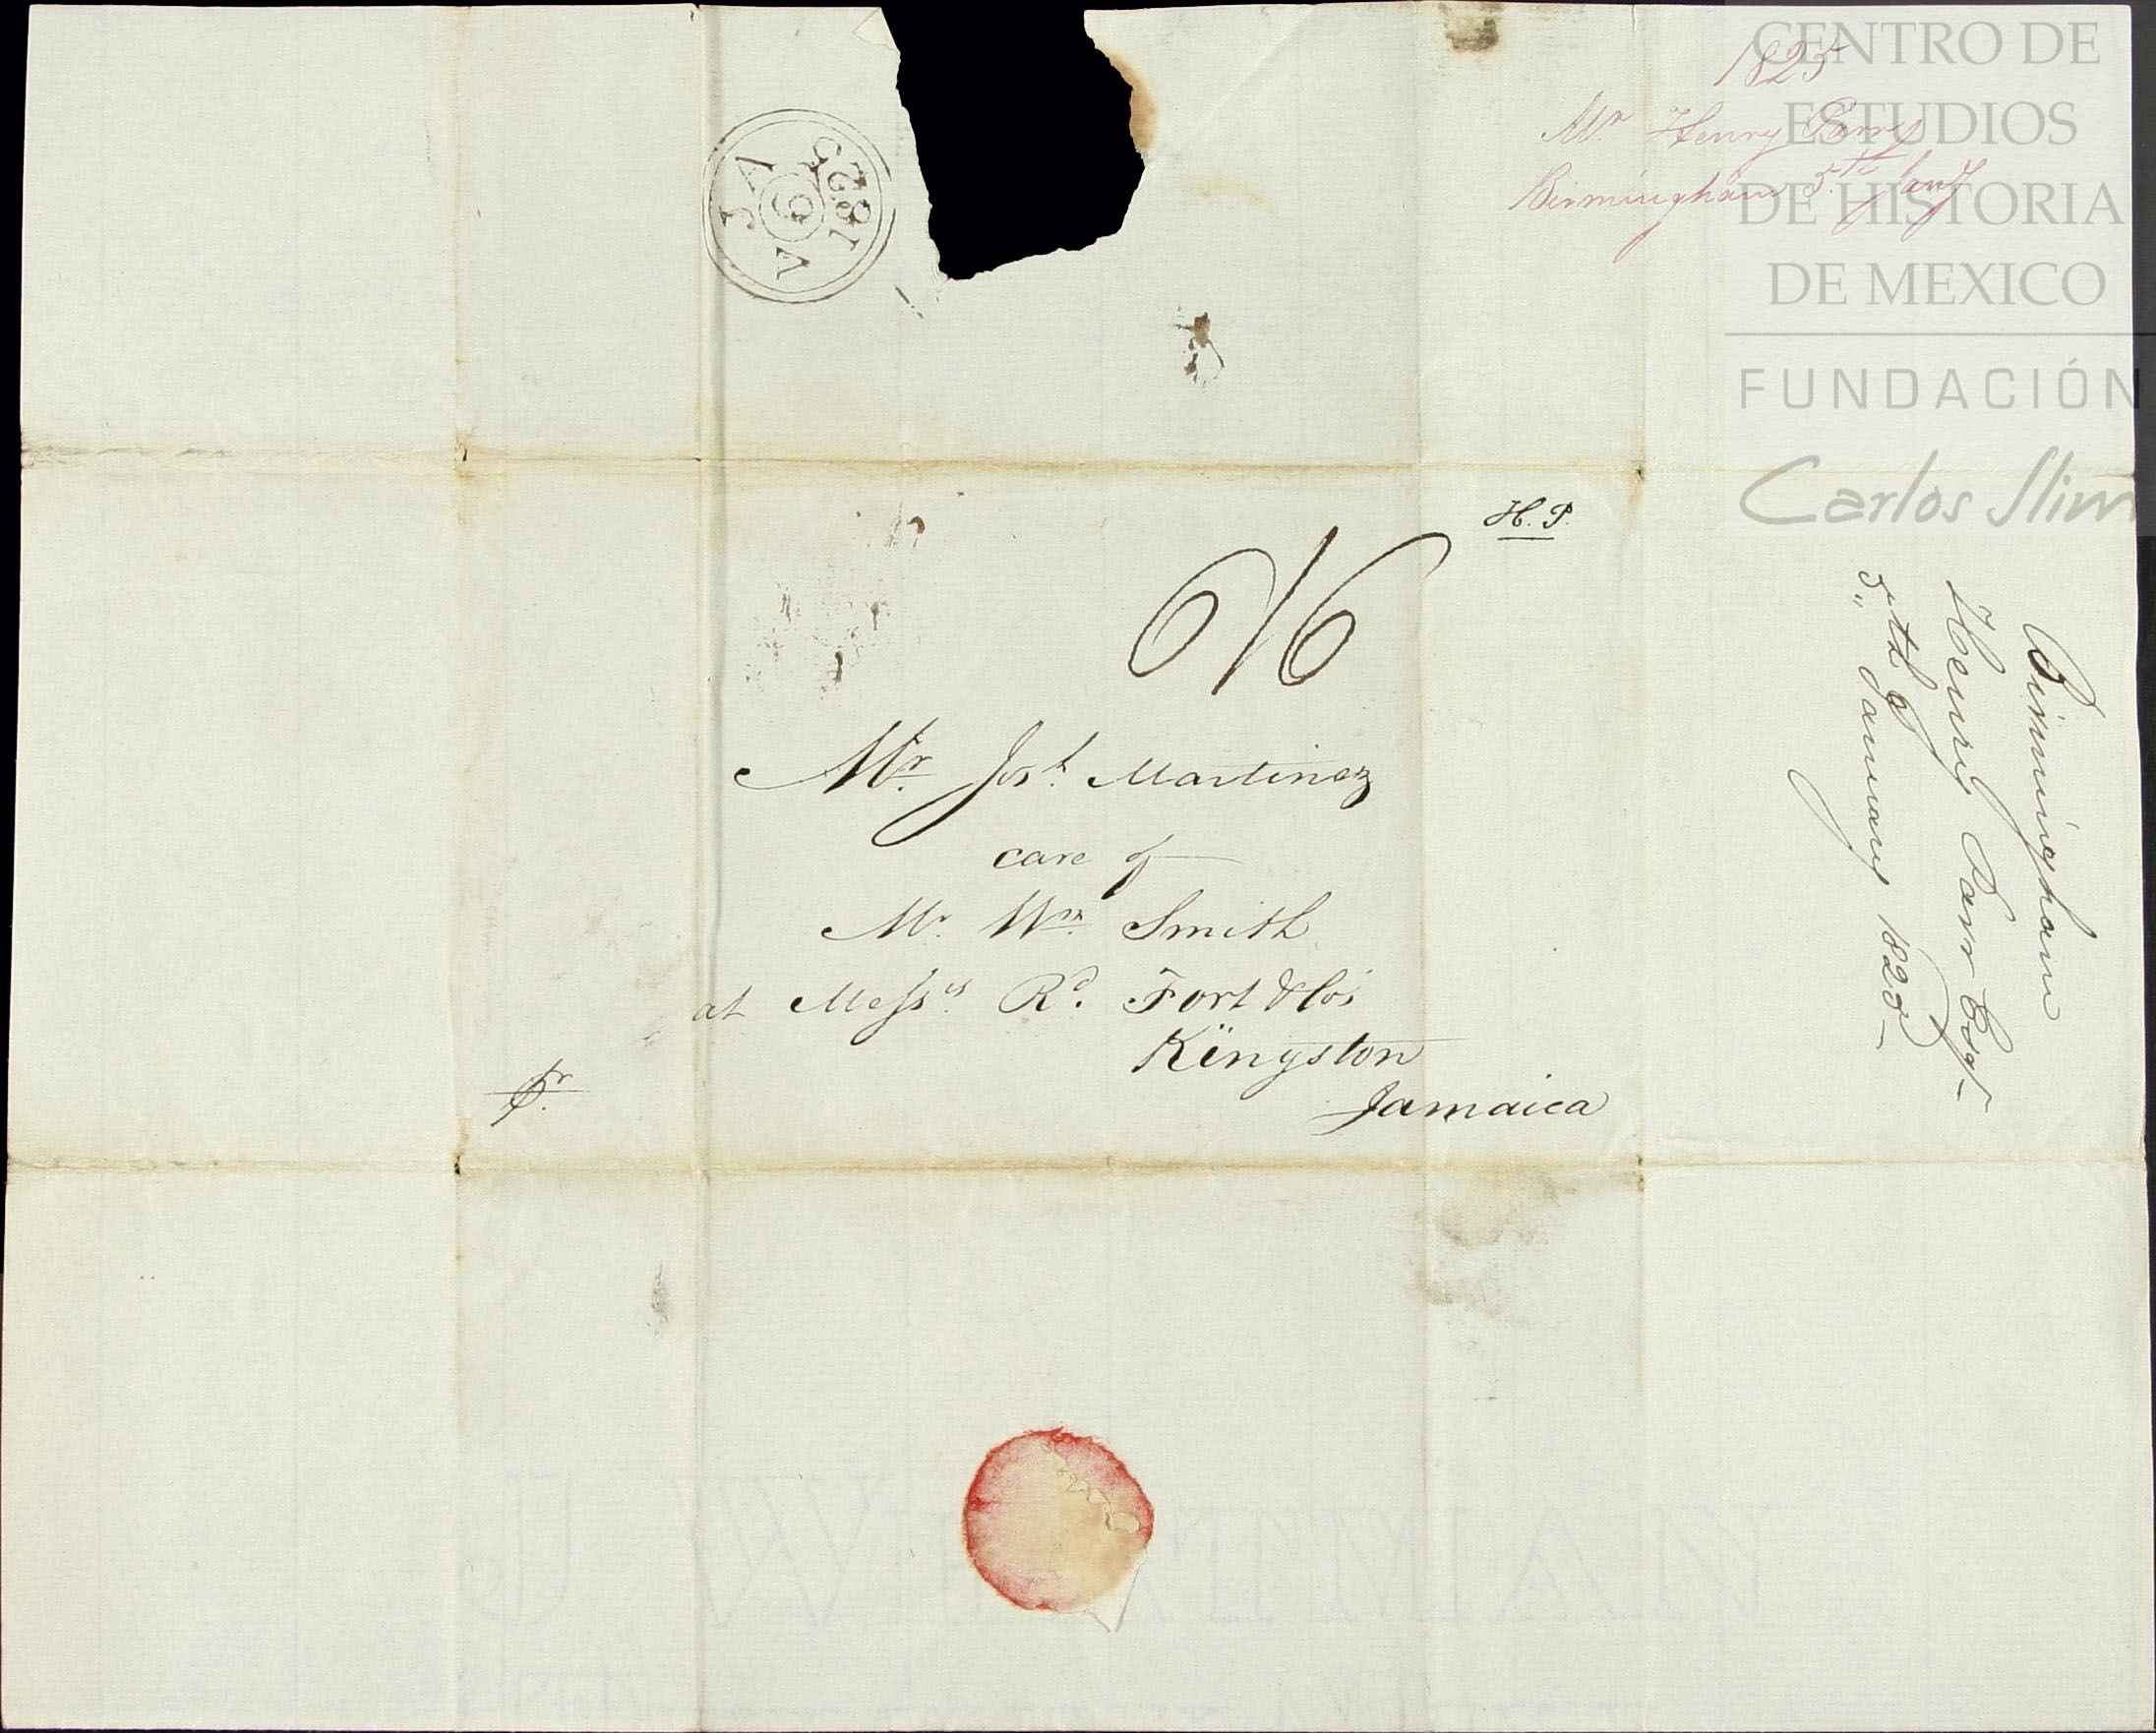 CENTRO DE
ESTUDIOS
DE HISTORIA
DE MEXICO
FUNDACIÓN
Carlos Slim
1825
Mr Henry Parr
Birmingham 5th Jany
JA
V 6 A
1825
H. P.
6/6
Mr. Josh. Martinez
care of
Mr. Wm. Smith
at Messrs. Rd. Fort & Co's
Kingston
Jamaica
pr.
Birmingham
Henry Parr Esqr
5th January 1825